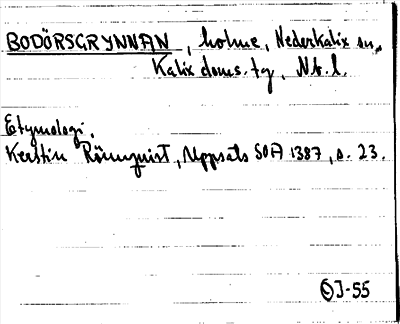 BODÖRSGRYNNAN, holme, Nederkalix sn,
Kalix doms. tg, Nb. l.
Etymologi.
Kerstin Rönnquist, Uppsats SOA 1387, s. 23.
J-55